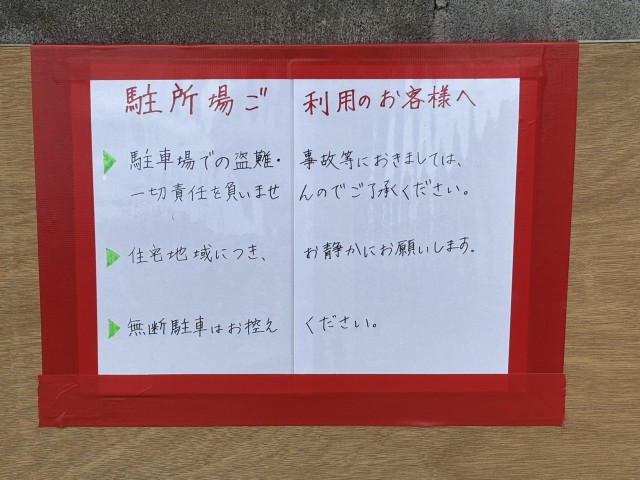 駐所場ご利用のお客様へ
駐車場での盗難・事故等におきましては、
一切責任を負いませんのでご了承ください。
住宅地域につき、お静かにお願いします。
無断駐車はお控えください。